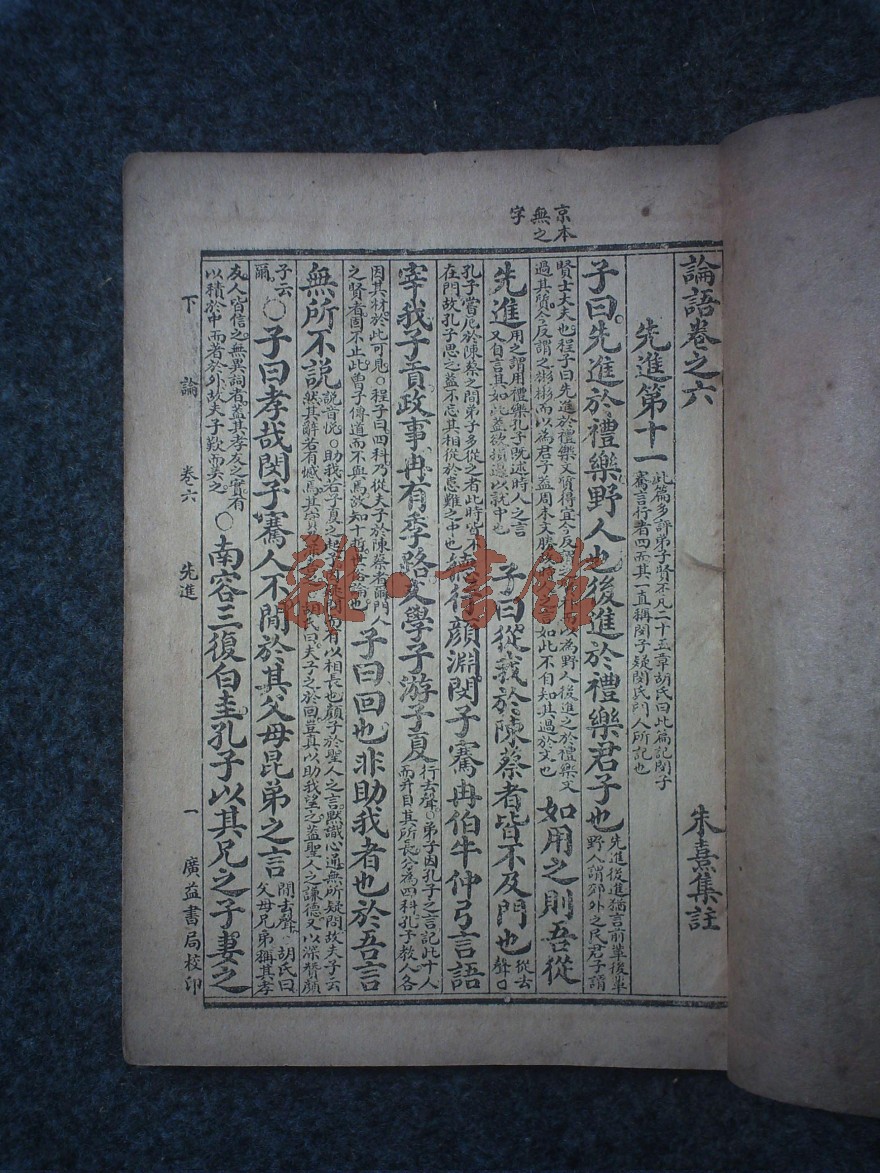 京本
無之
字
論語卷之六
朱熹集註
先進第十一
此篇多評弟子賢否凡二十五章胡氏曰此篇記閔子
騫言行者四而其一直稱閔子疑閔氏門人所記也
子曰先進於禮樂野人也後進於禮樂君子也
先進後進猶言前輩後輩
野人謂郊外之民君子謂
賢士大夫也程子曰先進於禮樂文質得宜今反謂之質朴而以為野人後進之於禮樂文
過其質今反謂之彬彬而以為君子蓋周末文勝故時人之言如此不自知其過於文也
如用之則吾從
先進
用之謂用禮樂孔子既述時人之言
又自言其如此蓋欲損過以就中也
子曰從我於陳蔡者皆不及門也
從去
聲○
孔子嘗厄於陳蔡之間弟子多從之者此時皆不
在門故孔子思之蓋不忘其相從於患難之中也
德行顏淵閔子騫冉伯牛仲弓言語
宰我子貢政事冉有季路文學子游子夏
行去聲○弟子因孔子之言記此十人
而并目其所長分為四科孔子教人各
因其材於此可見○程子曰四科乃從夫子於陳蔡者爾門人
之賢者固不止此曾子傳道而不與焉故知十哲世俗論也
子曰回也非助我者也於吾言
無所不説
説音悅○助我若子夏之起予因疑問而有以相長也顏子於聖人之言默識心通無所疑問故夫子云
然其辭若有憾焉其實乃深喜之胡氏曰夫子之於回豈真以助我望之蓋聖人之謙德又以深贊顏
子云
爾
○子曰孝哉閔子騫人不間於其父母昆弟之言
間去聲○胡氏曰
父母兄弟稱其孝
友人皆信之無異詞者蓋其孝友之實有
以積於中而著於外故夫子歎而美之
○南容三復白圭孔子以其兄之子妻之
下論
卷六
先進
一
廣益書局校印
雜·書館